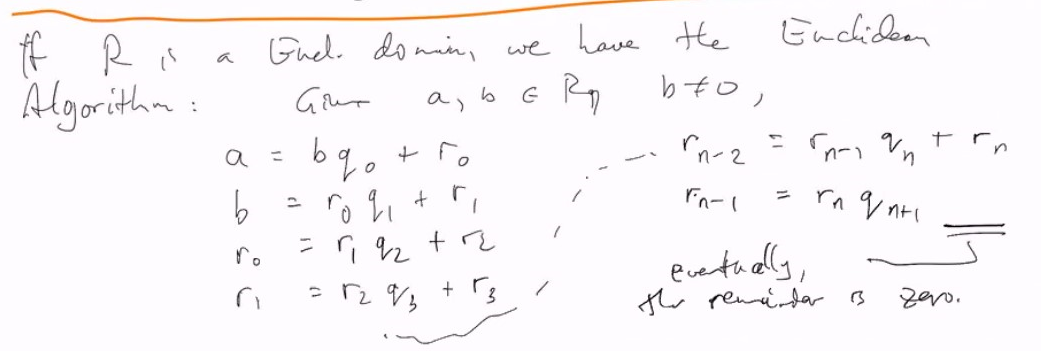 If R is a Eucl. domain, we have the Euclidean
Algorithm: Given a, b ∈ R, b ≠ 0,
a = bq₀ + r₀
b = r₀q₁ + r₁
r₀ = r₁q₂ + r₂
r₁ = r₂q₃ + r₃
rₙ₋₂ = rₙ₋₁qₙ + rₙ
rₙ₋₁ = rₙqₙ₊₁
eventually,
the remainder is zero.